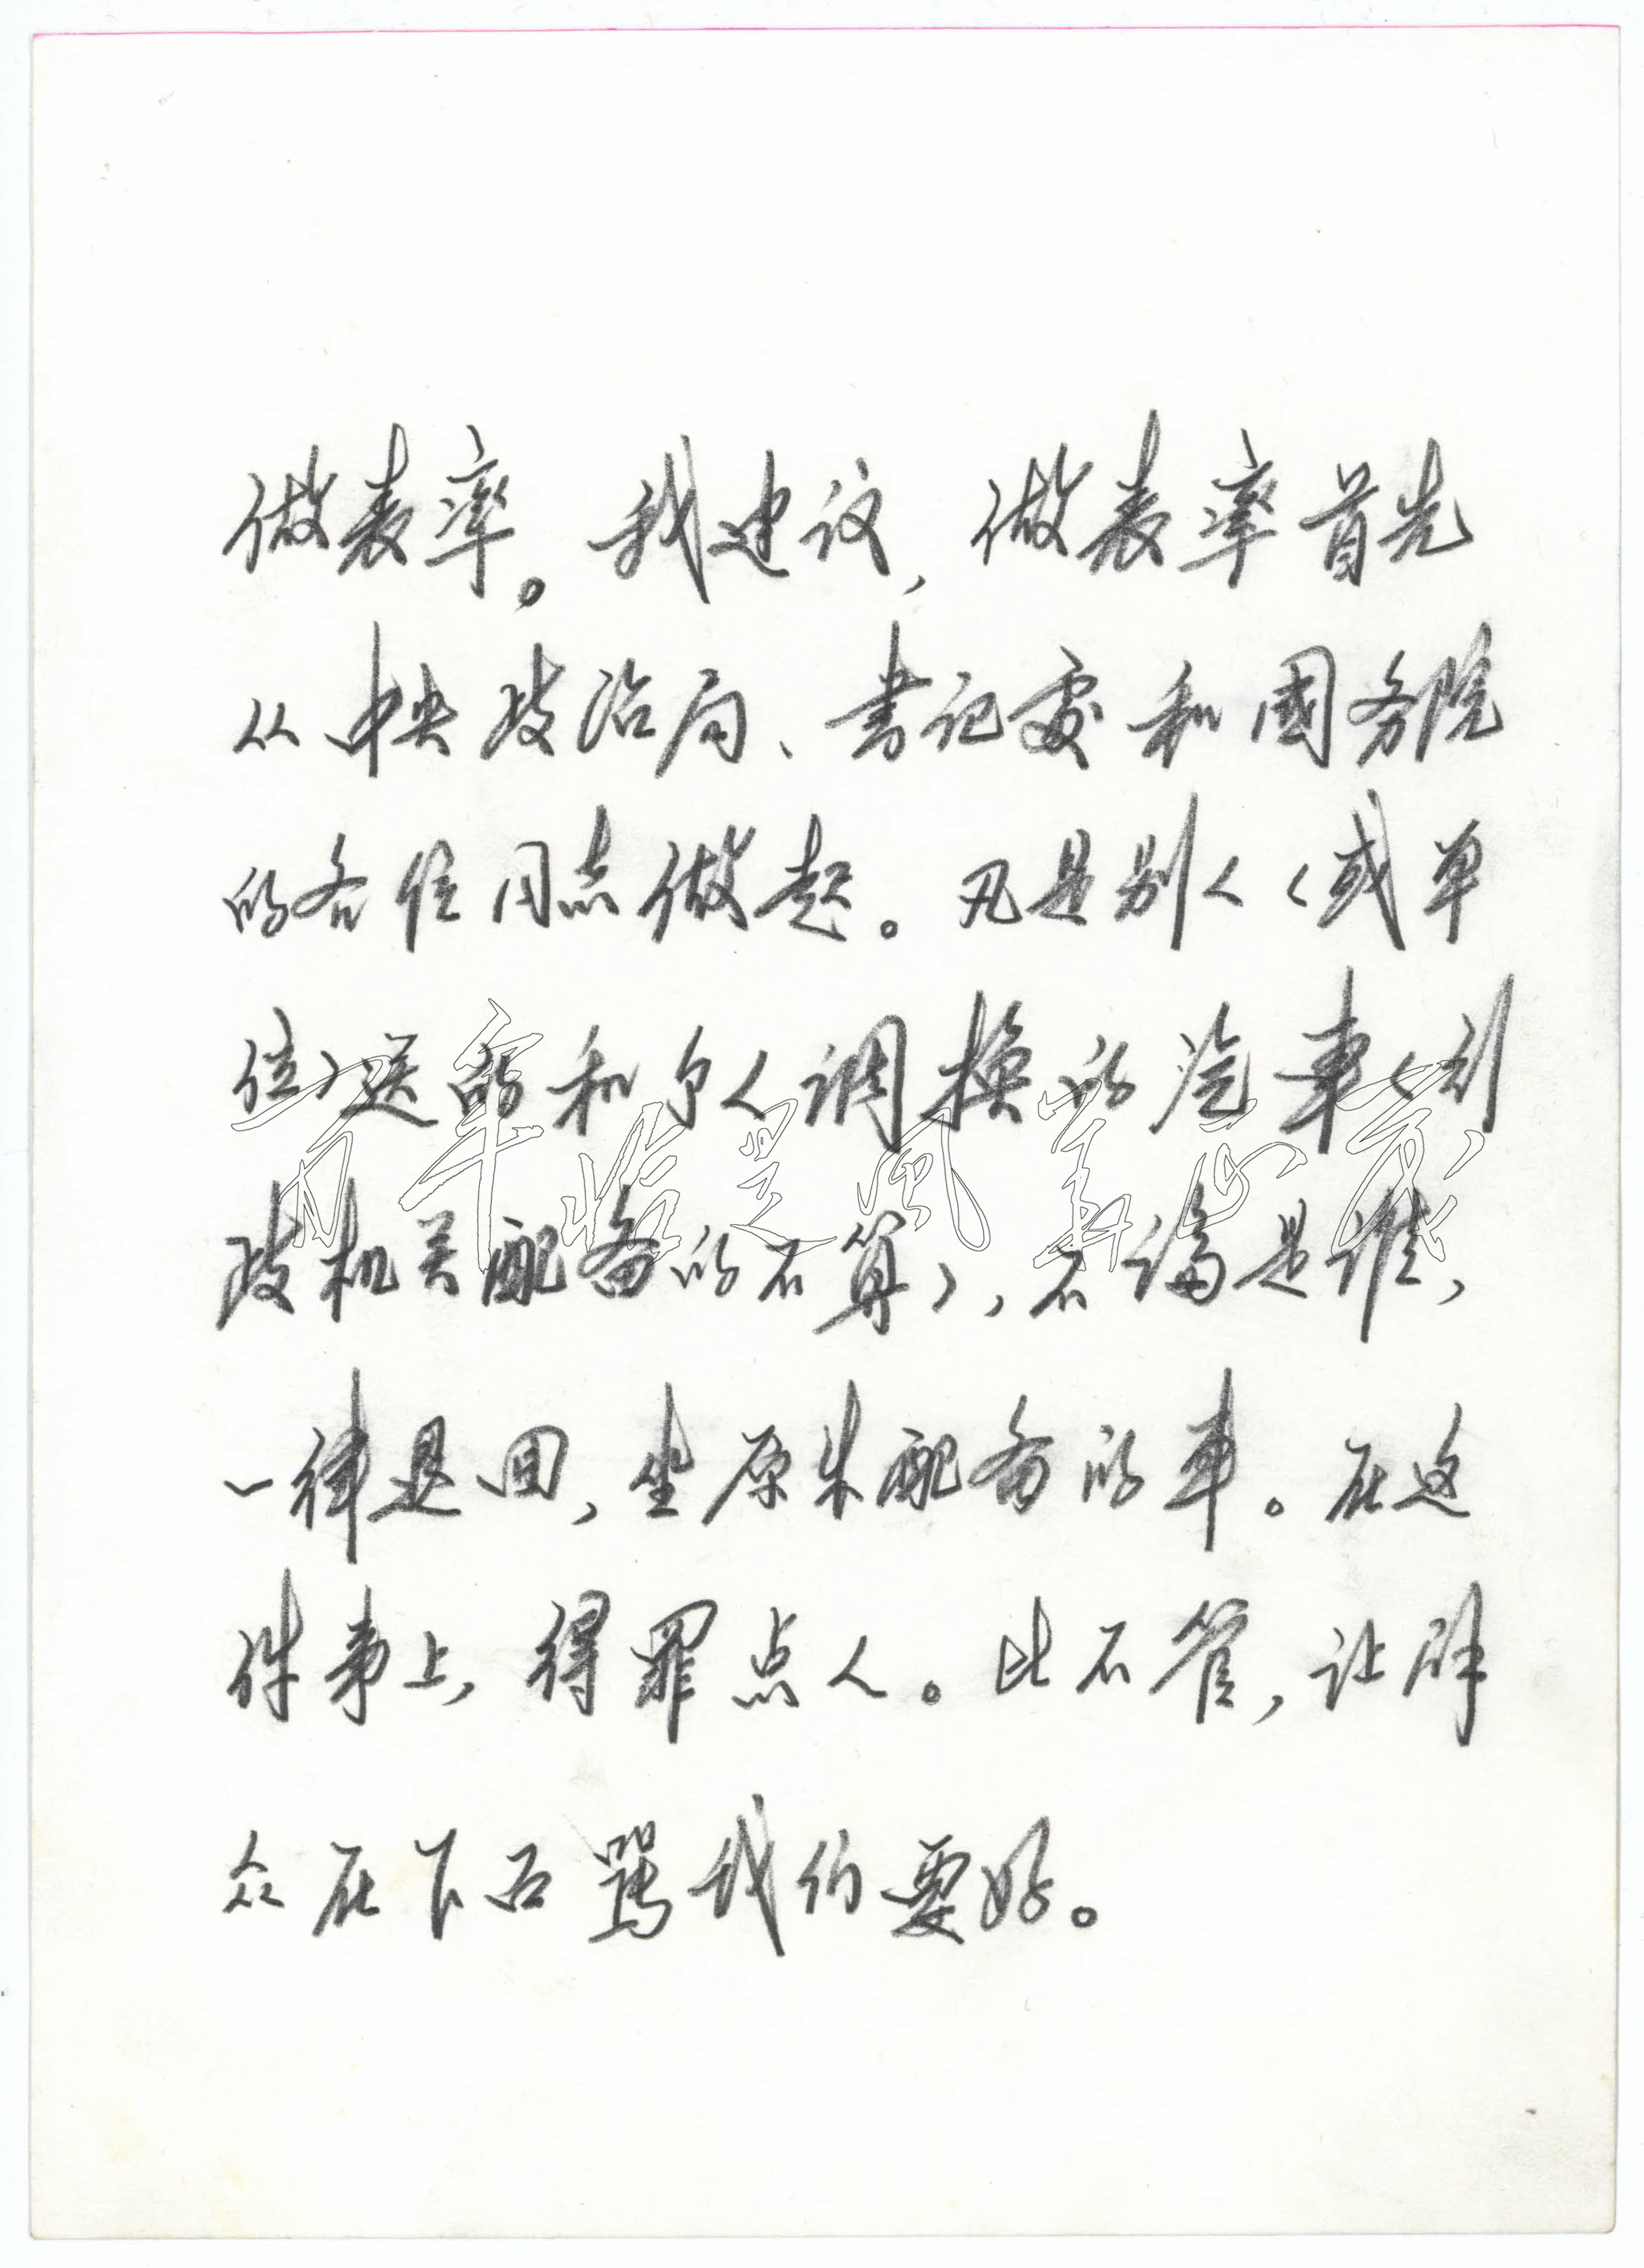 做表率。我建议，做表率首先
从中央政治局、書记處和國务院
的各位同志做起。凡是别人（或单
位）送的和个人调换的汽车（行
百年恰是風華正茂
政机关配备的不算），不论是谁，
一律退回，坐原来配备的车。在这
件事上，得罪点人。比不管，让群
众在下面駡我们要好。